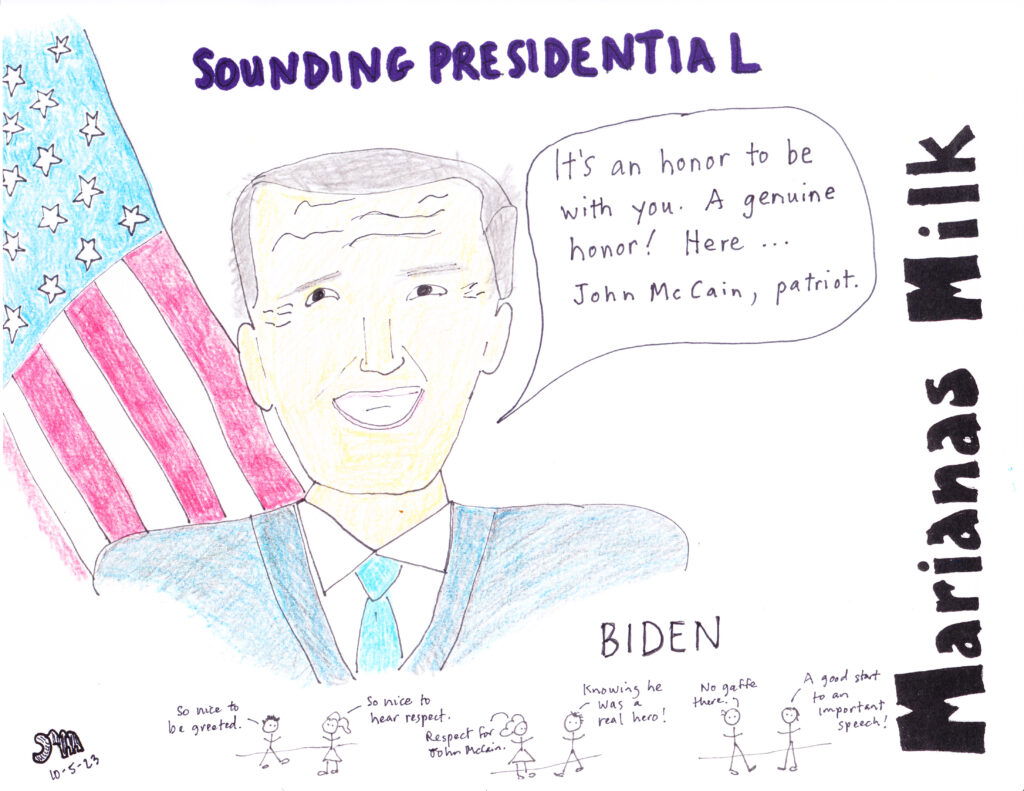 SOUNDING PRESIDENTIAL
It's an honor to be
with you. A genuine
honor! Here ...
John McCain, patriot.
Marianas Milk
BIDEN
So nice to
be greeted.
So nice to
hear respect.
Respect for
John McCain.
Knowing he
was a
real hero!
No gaffe
there.
A good start
to an
important
speech!
10-5-23